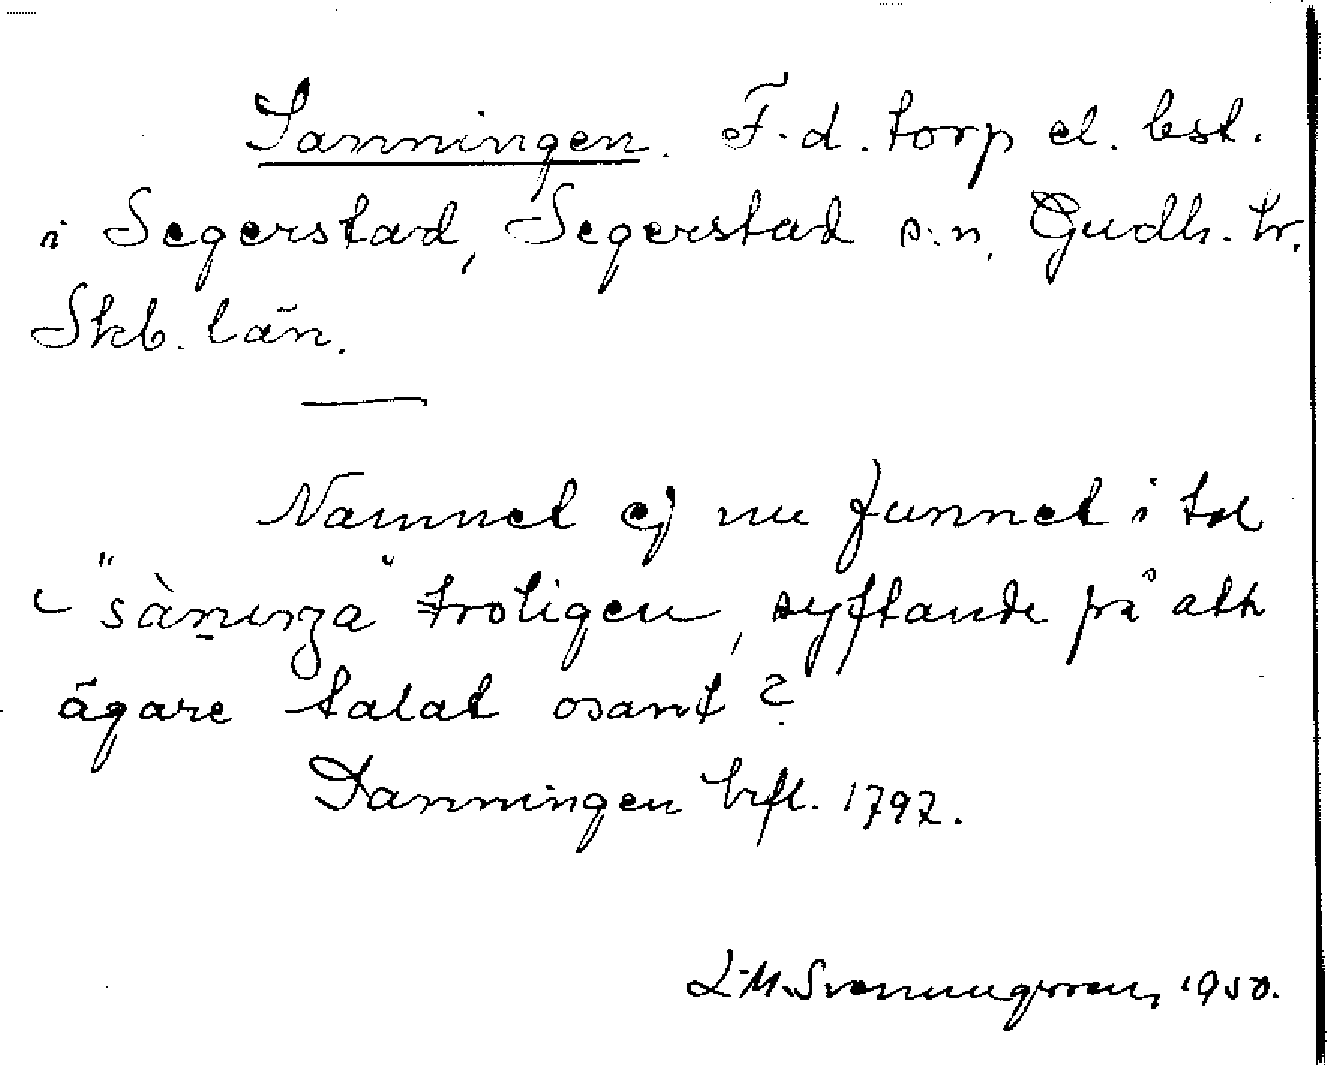 Sanningen. F.d. torp el. bst.
i Segerstad, Segerstad s:n, Gudh. hr.
Skb. län.
Namnet ej nu funnet i tal
"sànıŋa" troligen, syftande på att
ägare talat osant?
Sanningen hfl. 1797.
L.M. Svenungsson, 1950.